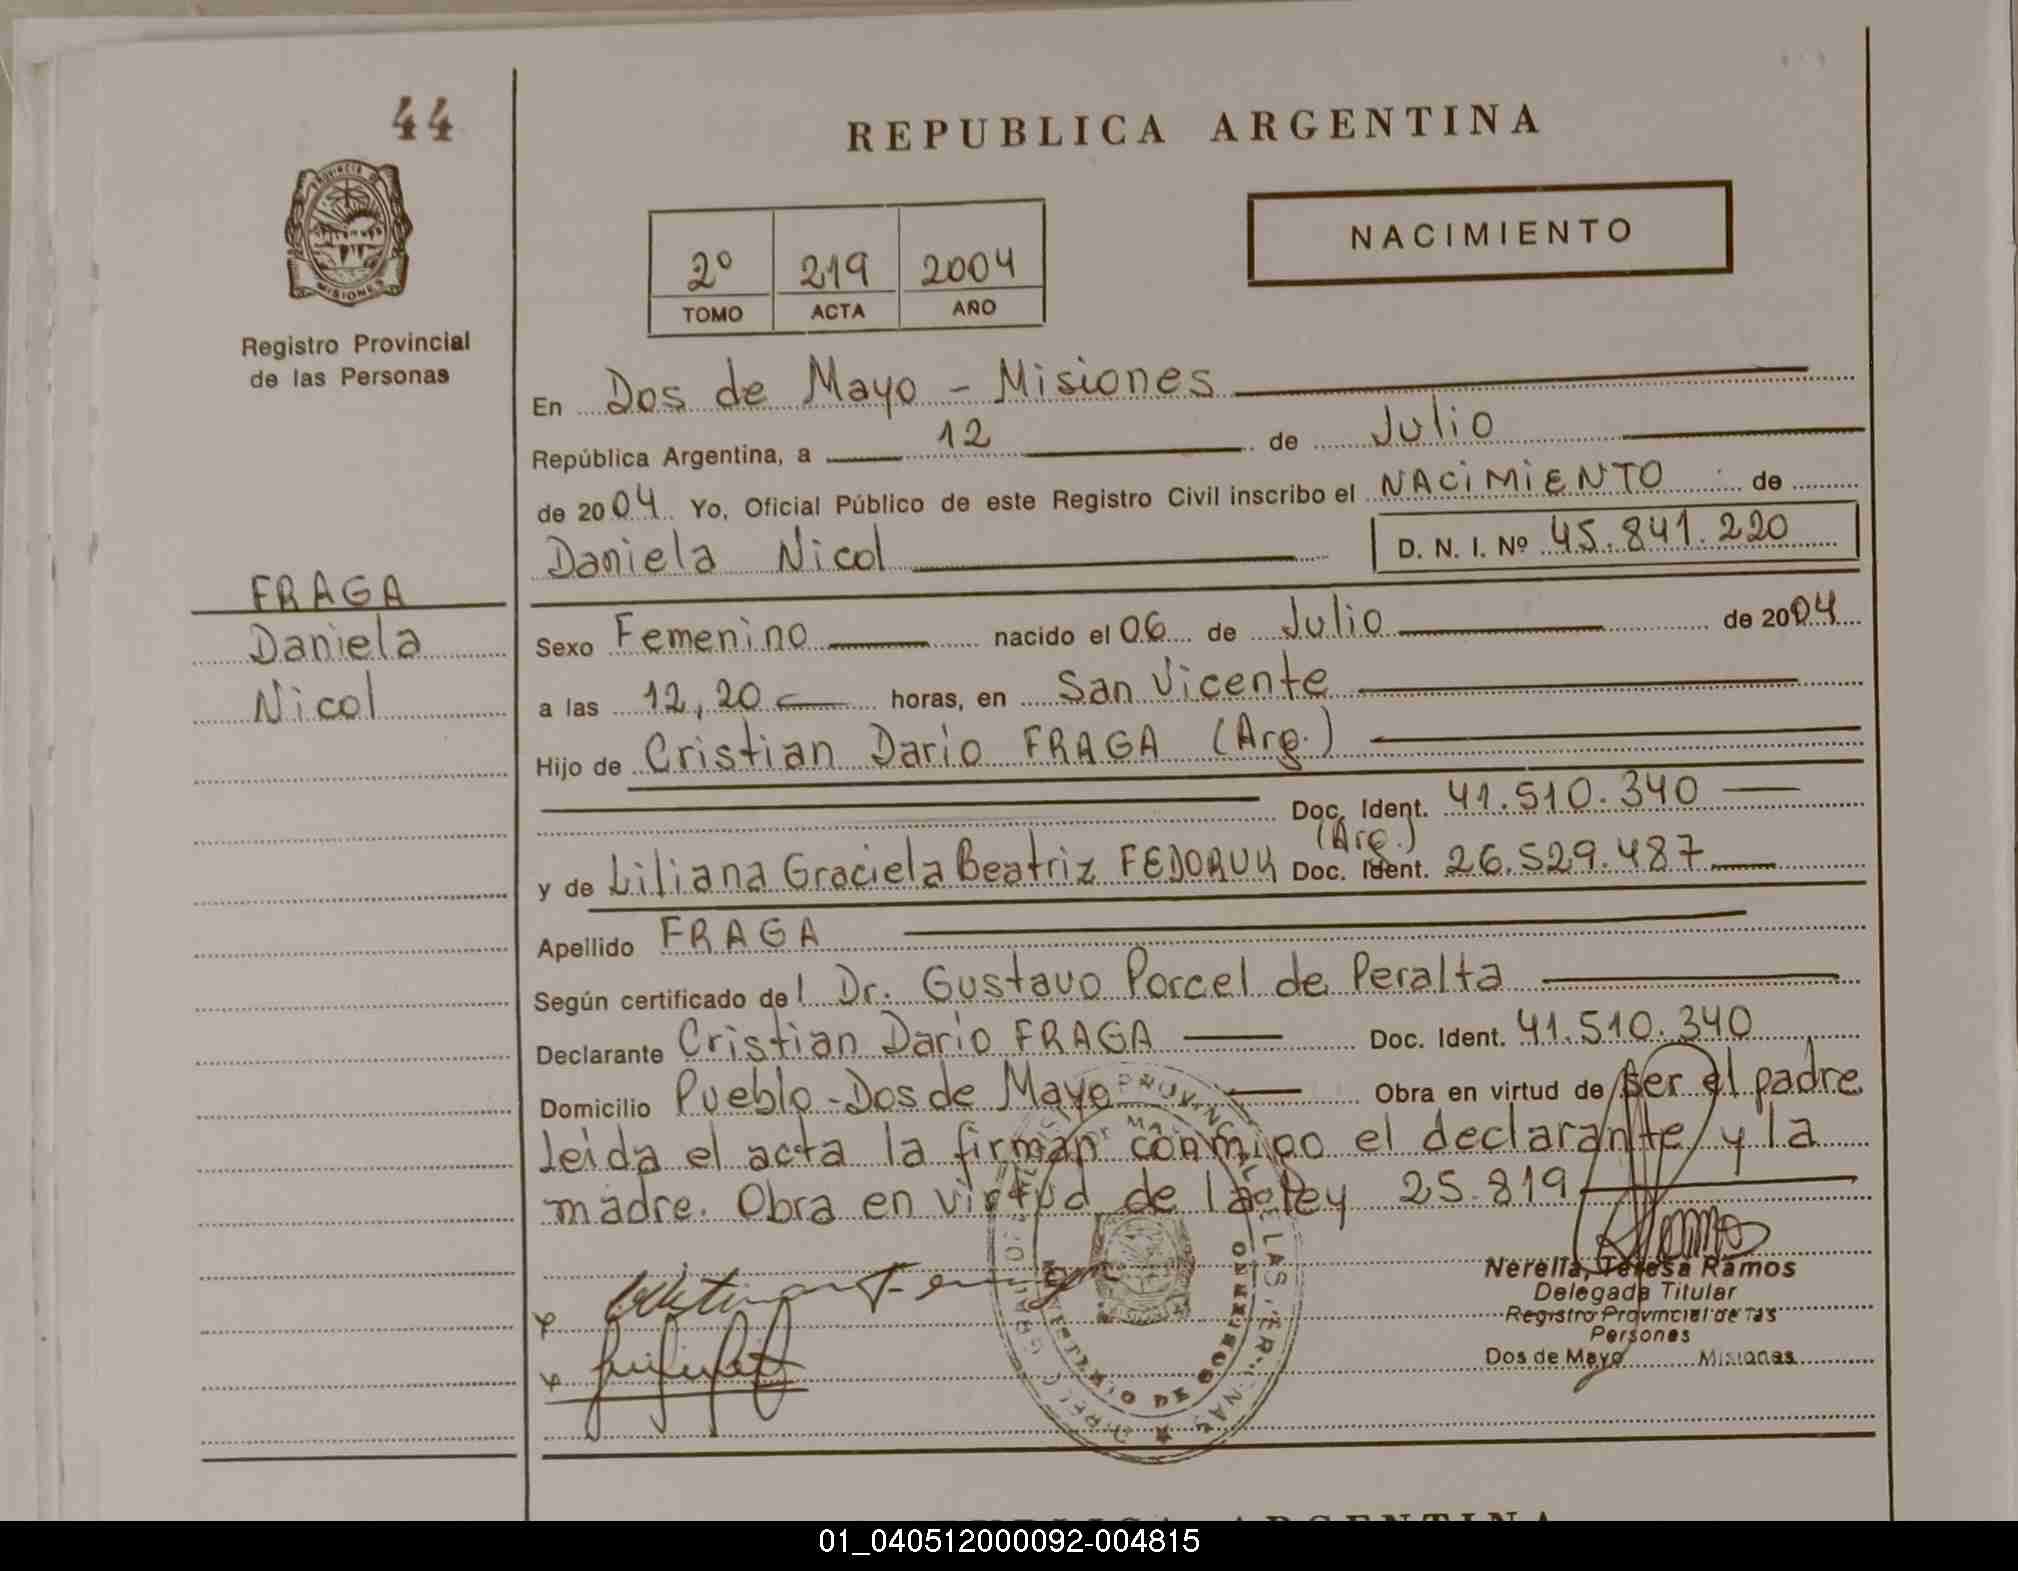 44
REPUBLICA ARGENTINA
NACIMIENTO
2º 219 2004
TOMO ACTA AÑO
PROVINCIA DE
MISIONES
Registro Provincial
de las Personas
En Dos de Mayo - Misiones
República Argentina, a 12 de Julio
de 2004. Yo, Oficial Público de este Registro Civil inscribo el NACIMIENTO de
Daniela Nicol D. N. I. Nº 45.841.220
FRAGA
Daniela
Nicol
Sexo Femenino nacido el 06 de Julio de 2004
a las 12,20 horas, en San Vicente
Hijo de Cristian Dario FRAGA (Arg.)
Doc. Ident. 41.510.340
(Arg.)
y de Liliana Graciela Beatriz FEDORUK Doc. Ident. 26.529.487
Apellido FRAGA
Según certificado del Dr. Gustavo Porcel de Peralta
Declarante Cristian Dario FRAGA Doc. Ident. 41.510.340
Domicilio Pueblo - Dos de Mayo Obra en virtud de ser el padre
leida el acta la firman conmigo el declarante y la
madre. Obra en virtud de la ley 25.819
Nerella, Teresa Ramos
Delegada Titular
Registro Provincial de las
Persones
Dos de Mayo Misiones
MINISTERIO DE GOBIERNO
REPUBLICA ARGENTINA
01_040512000092-004815